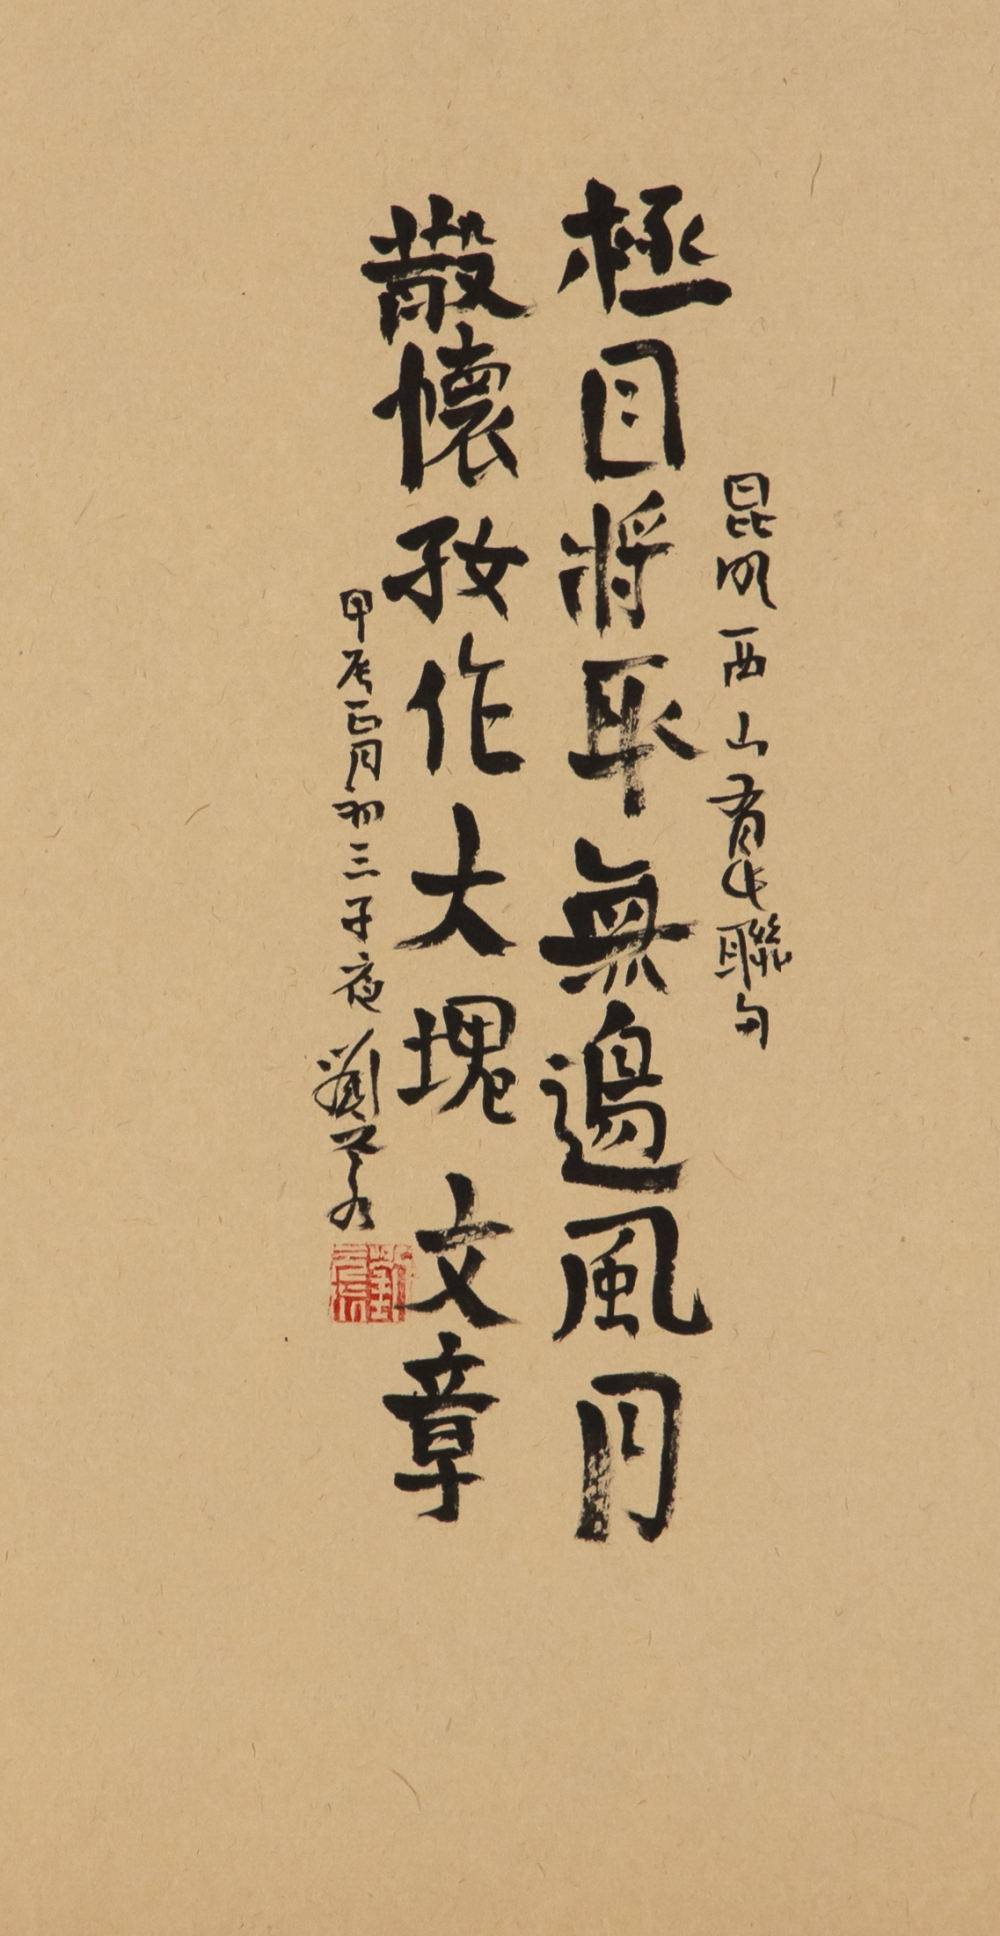 昆明西山有此聯句
極目將取無邊風月
散懷好作大塊文章
甲辰正月初三子夜劉